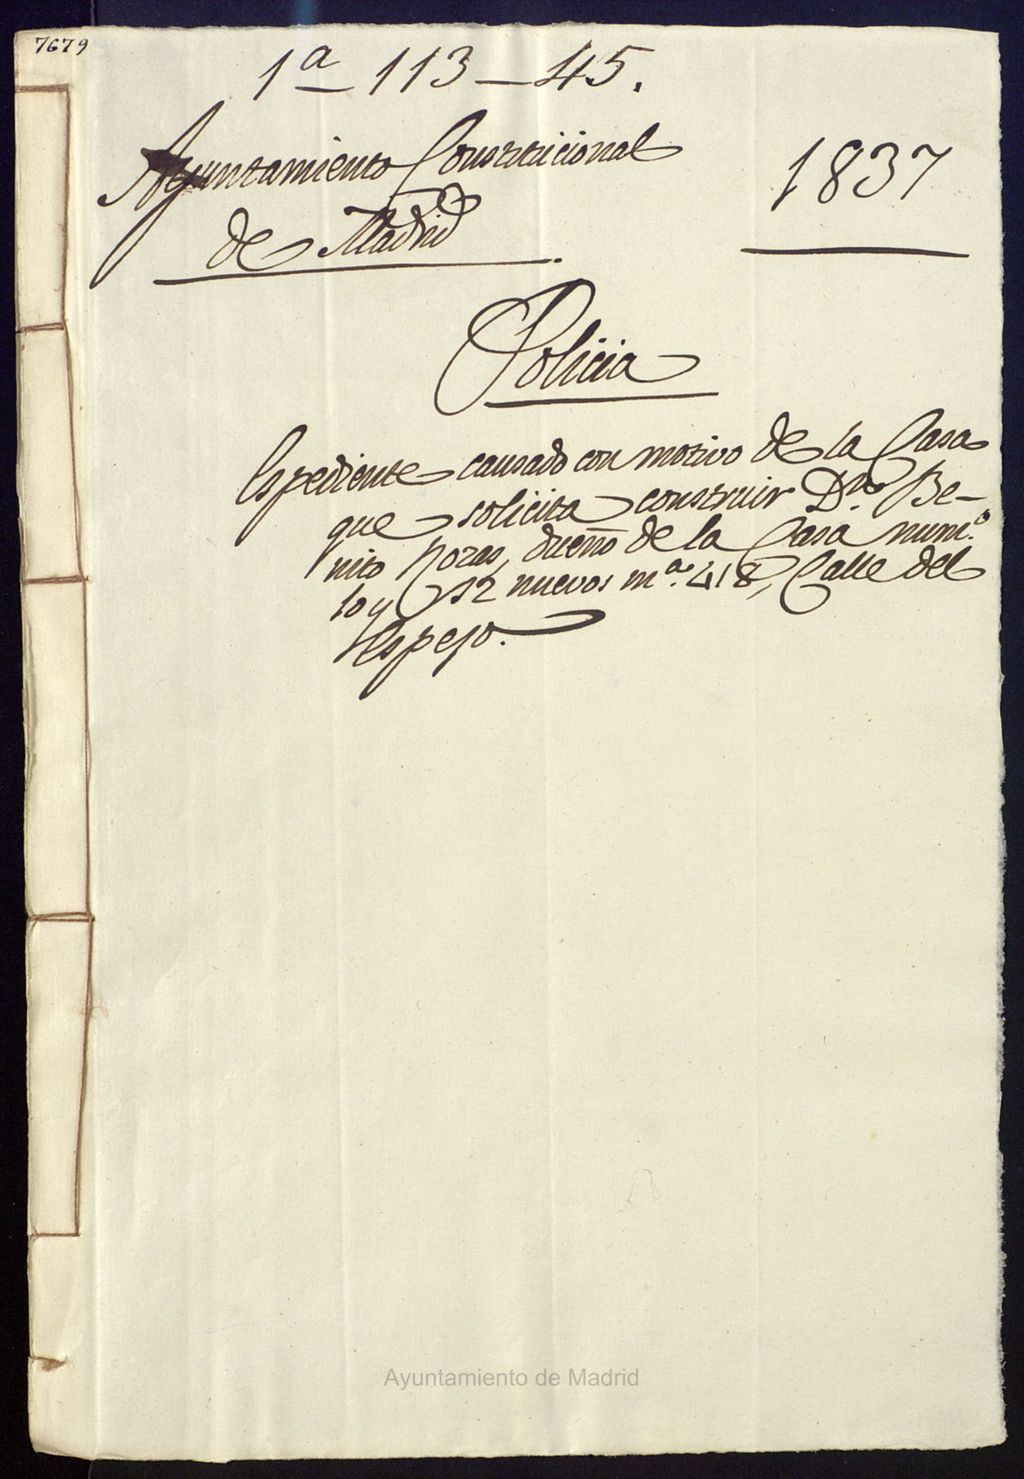 7679
1ª-113-45.
Ayuntamiento Constitucional
de Madrid.
1837
Policia
Espediente causado con motivo de la Casa
que solicita construir Dn. Be-
nito Rozas, dueño de la Casa num.º
10 y 12 nuevos m.ª 418, Calle del
Espejo.
Ayuntamiento de Madrid